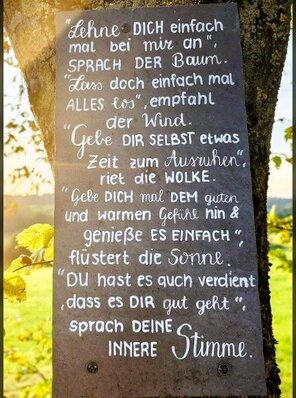 "Lehne DICH einfach
mal bei mir an",
SPRACH DER BAUM.
"Lass doch einfach mal
ALLES los", empfahl
der Wind.
"Gebe DIR SELBST etwas
Zeit zum Ausruhen",
riet die WOLKE.
"Gebe DICH mal DEM guten
und warmen Gefühl hin &
genieße ES EINFACH",
flüstert die Sonne.
"DU hast es auch verdient,
dass es DIR gut geht",
sprach DEINE
INNERE Stimme.